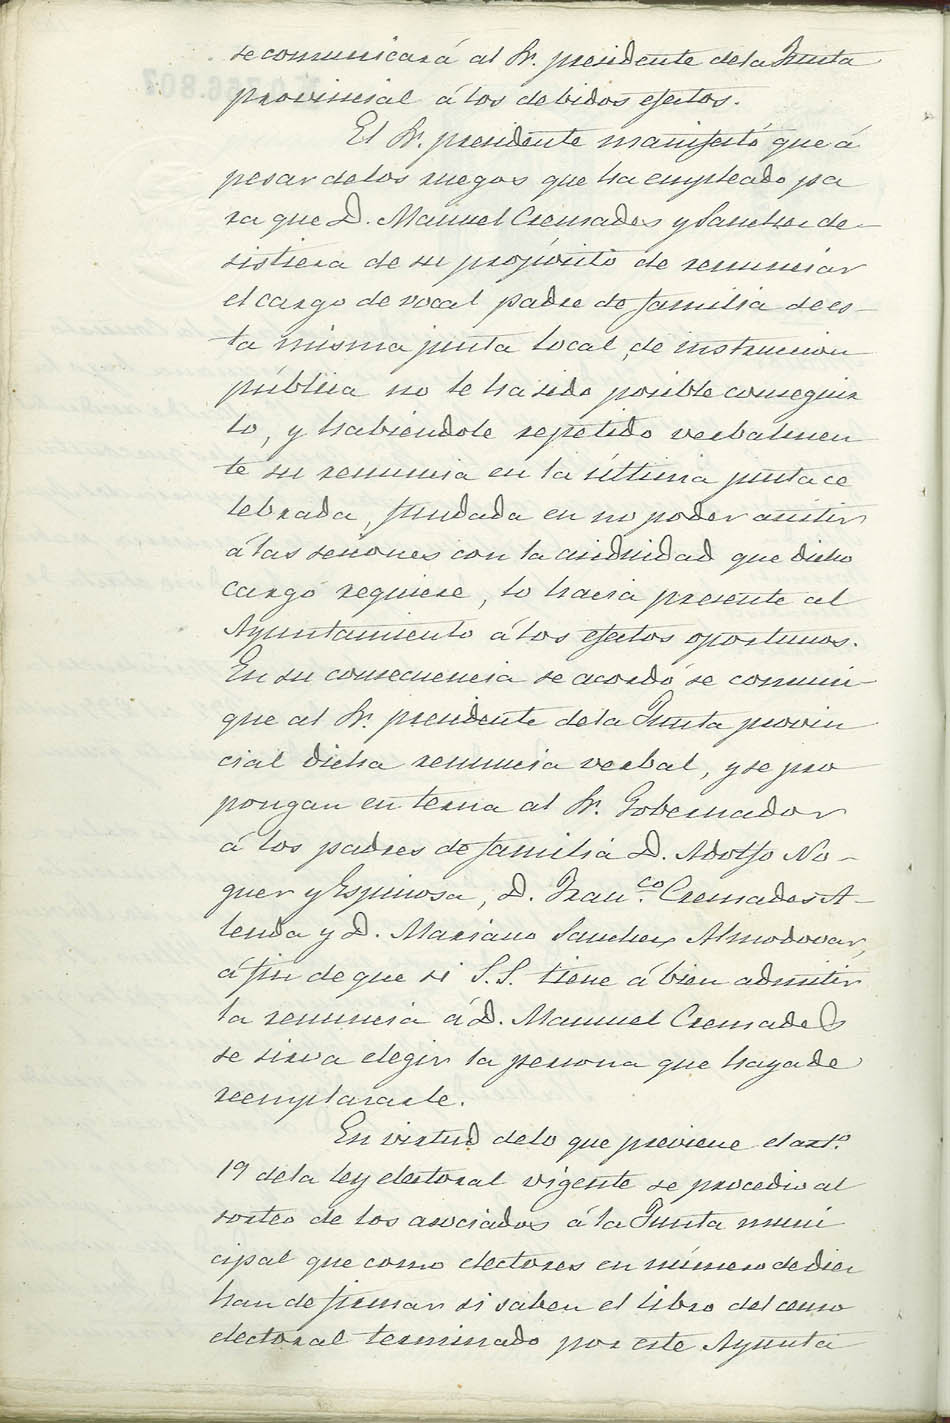 se comunicará al Sr. presidente de la Junta
provincial á los debidos efectos.
El Sr. presidente manifestó que á
pesar de los ruegos que ha empleado pa
ra que D. Manuel Cremades y Sanchez de-
sistiera de su propósito de renunciar
el cargo de vocal padre de familia de es-
ta misma junta local de instruccion
pública no le ha sido posible conseguir
lo, y habiéndole repetido verbalmen
te su renuncia en la última junta ce
lebrada, fundada en no poder asistir
á las sesiones con la asiduidad que dicho
cargo requiere, lo hacia presente al
Ayuntamiento á los efectos oportunos.
En su consecuencia se acordó se comuni-
que al Sr. presidente de la Junta provin
cial dicha renuncia verbal, y se pro
pongan en terna al Sr. Gobernador
á los padres de familia D. Adolfo No-
guer y Espinosa, D. Fran.co Cremades A-
lenda y D. Mariano Sanchez Almodovar,
á fin de que si S.S. tiene á bien admitir
la renuncia á D. Manuel Cremades
se sirva elegir la persona que haya de
reemplazarle.
En virtud de lo que previene el art.o
19 de la ley electoral vigente se procedio al
sorteo de los asociados á la Junta muni
cipal que como electores en número de diez
han de firmar si saben el libro del censo
electoral terminado por este Ayunta